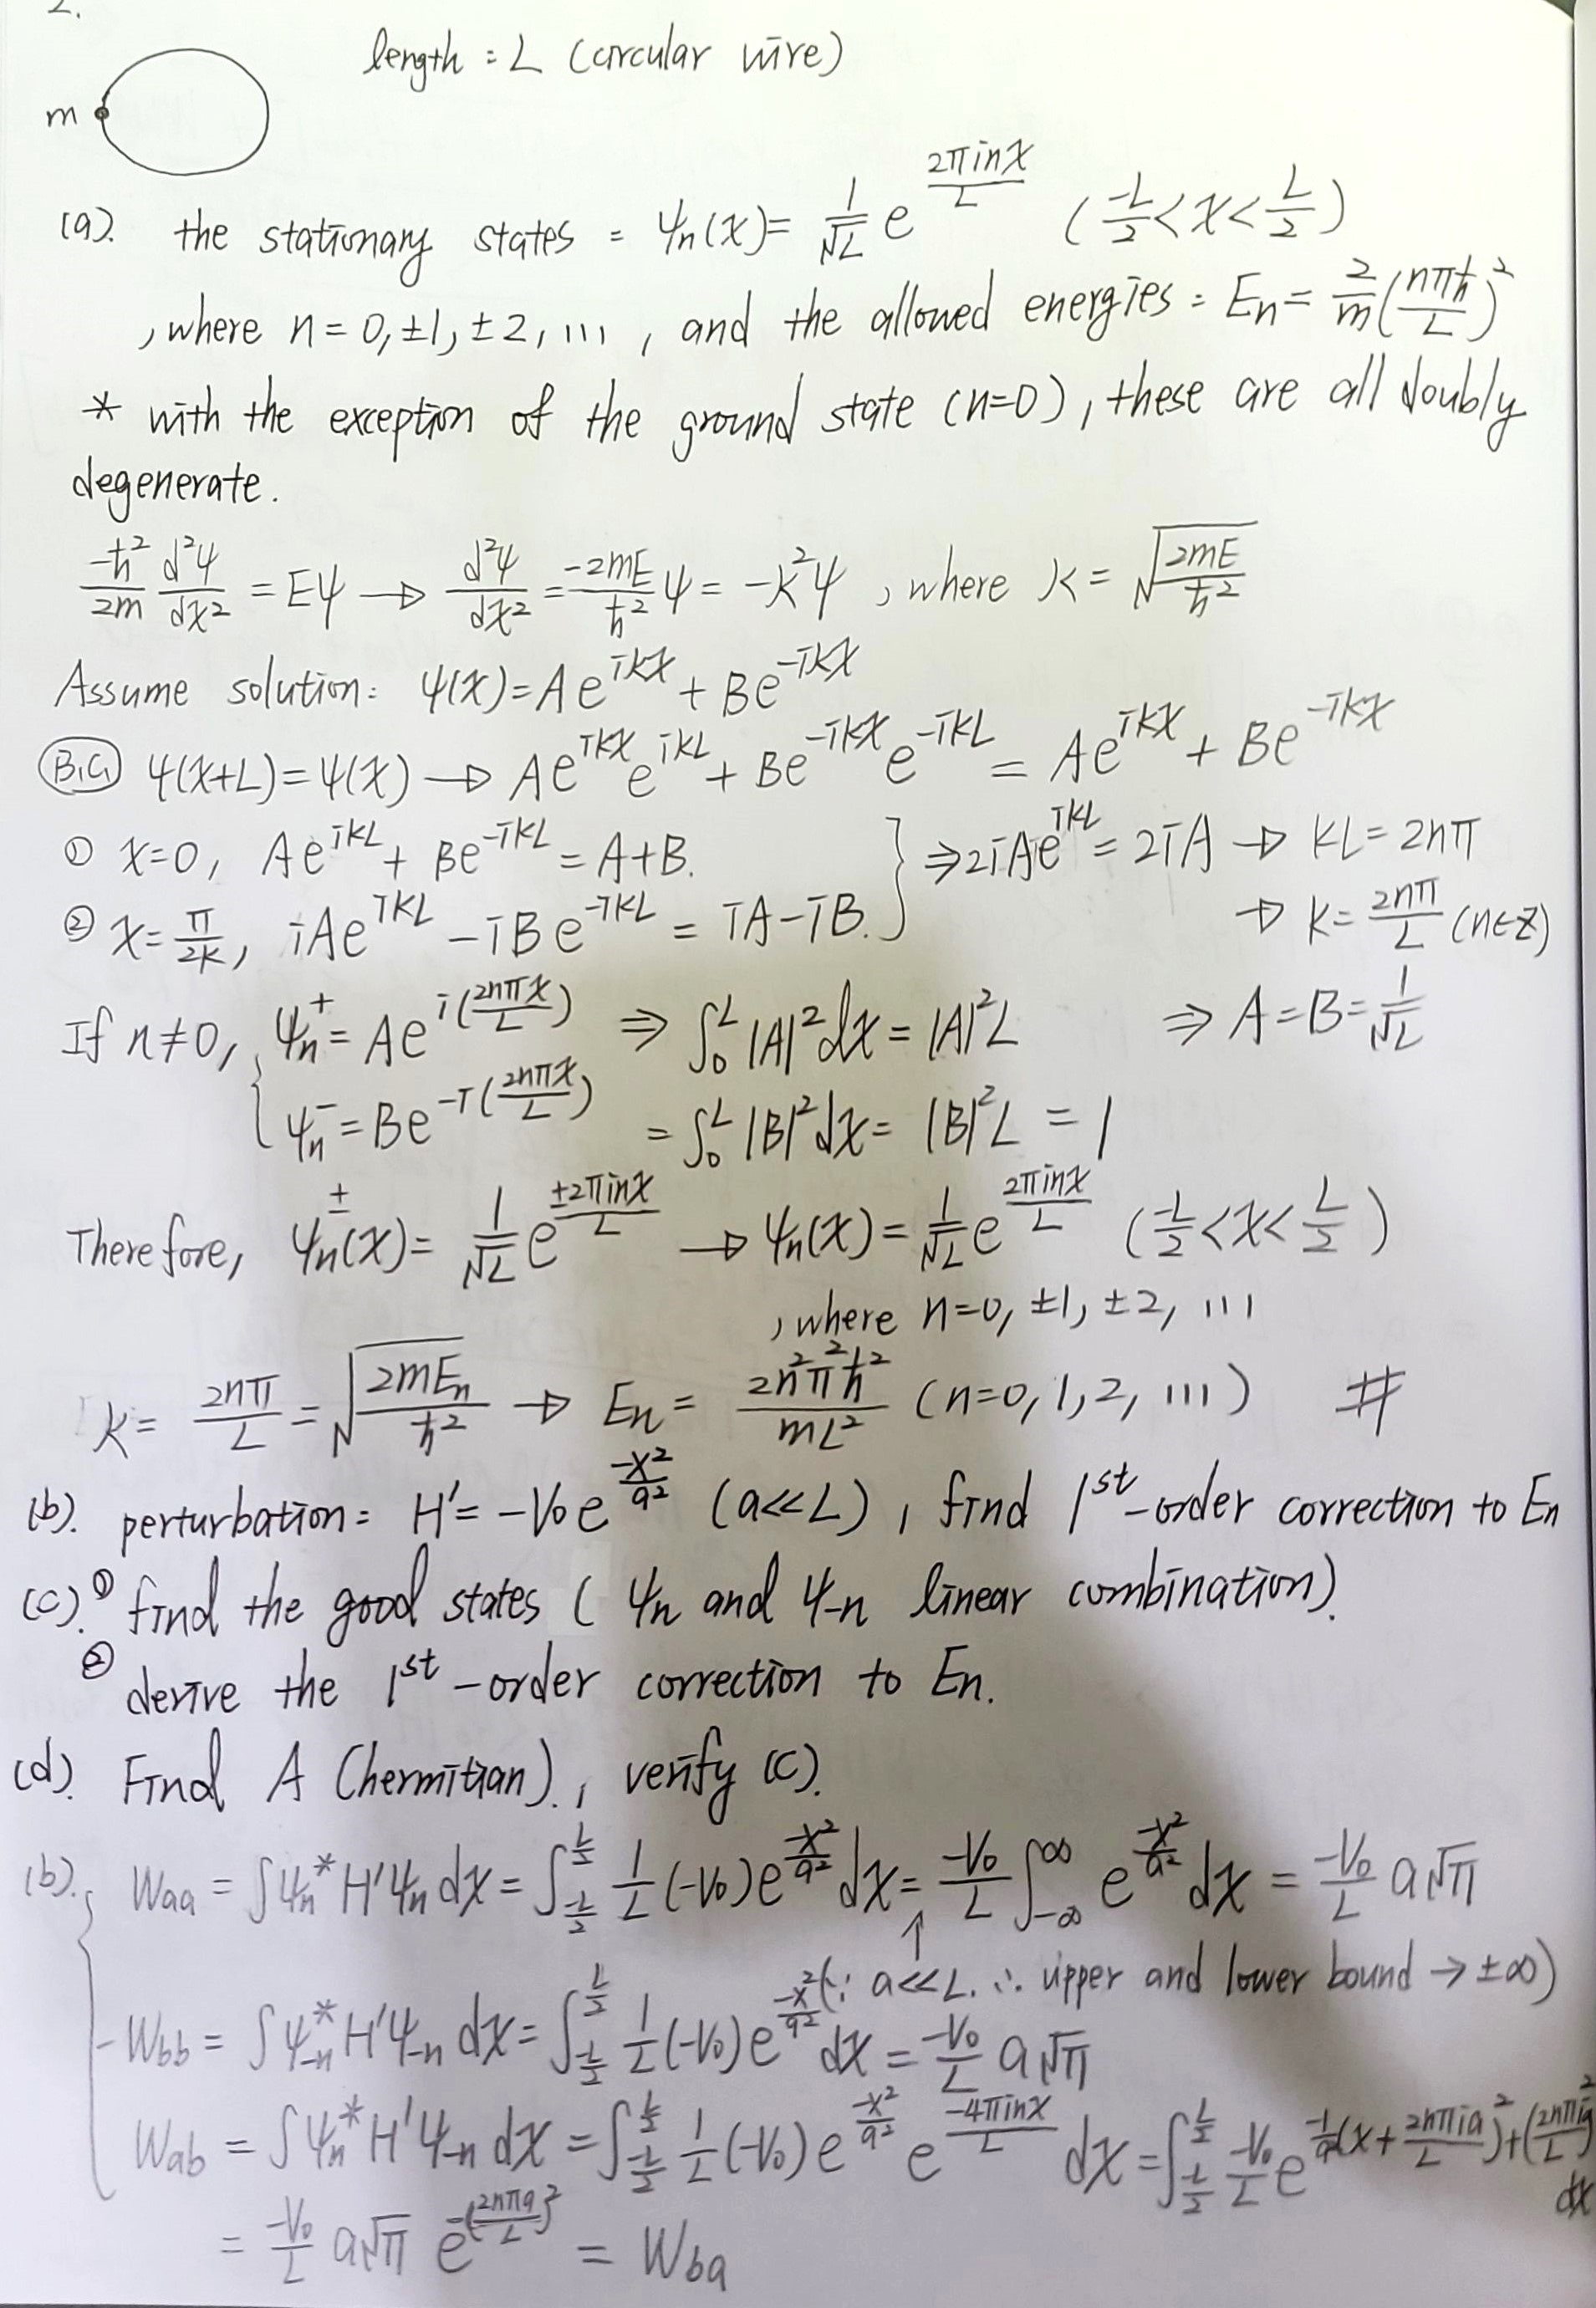 2.
length : L (circular wire)
m
(a). the stationary states = ψn(x)= 1/√L e^(2πinx/L) (-L/2<x<L/2)
, where n=0, ±1, ±2, ..., and the allowed energies = En= 2/m(nπħ/L)²
* with the exception of the ground state (n=0), these are all doubly
degenerate.
-ħ²/2m d²ψ/dx² = Eψ → d²ψ/dx² = -2mE/ħ² ψ = -k²ψ , where k = √(2mE/ħ²)
Assume solution: ψ(x)=Ae^(ikx) + Be^(-ikx)
B.C. ψ(x+L)=ψ(x) → Ae^(ikx)e^(ikL) + Be^(-ikx)e^(-ikL) = Ae^(ikx) + Be^(-ikx)
① x=0, Ae^(ikL) + Be^(-ikL) = A+B. } ⇒ 2iAe^(ikL) = 2iA → kL=2nπ
② x=π/2k, iAe^(ikL) - iBe^(-ikL) = iA-iB. → k=2nπ/L (n∈Z)
If n≠0, { ψn⁺ = Ae^(i(2nπx/L)) ⇒ ∫₀^L |A|²dx = |A|²L ⇒ A=B=1/√L
ψn⁻ = Be^(-i(2nπx/L)) = ∫₀^L |B|²dx = |B|²L = 1
Therefore, ψn^±(x)= 1/√L e^(±2πinx/L) → ψn(x)= 1/√L e^(2πinx/L) (-L/2<x<L/2)
, where n=0, ±1, ±2, ...
k= 2nπ/L = √(2mEn/ħ²) → En = 2n²π²ħ²/mL² (n=0,1,2, ...) #
(b). perturbation = H'= -V₀e^(-x²/a²) (a<<L), find 1st-order correction to En
(c). ① find the good states (ψn and ψ-n linear combination).
② derive the 1st-order correction to En.
(d). Find A (hermitian)., verify (c).
(b). { Waa = ∫ψn* H'ψn dx = ∫_(-L/2)^(L/2) 1/L (-V₀)e^(-x²/a²) dx = -V₀/L ∫_(-∞)^∞ e^(-x²/a²) dx = -V₀/L a√π
↑ (∵ a<<L. ∴ upper and lower bound → ±∞)
Wbb = ∫ψ-n* H'ψ-n dx = ∫_(-L/2)^(L/2) 1/L (-V₀)e^(-x²/a²) dx = -V₀/L a√π
Wab = ∫ψn* H'ψ-n dx = ∫_(-L/2)^(L/2) 1/L (-V₀)e^(-x²/a²) e^(-4πinx/L) dx = ∫_(-L/2)^(L/2) -V₀/L
= -V₀/L a√π e^(-(2nπa/L)²) = Wba